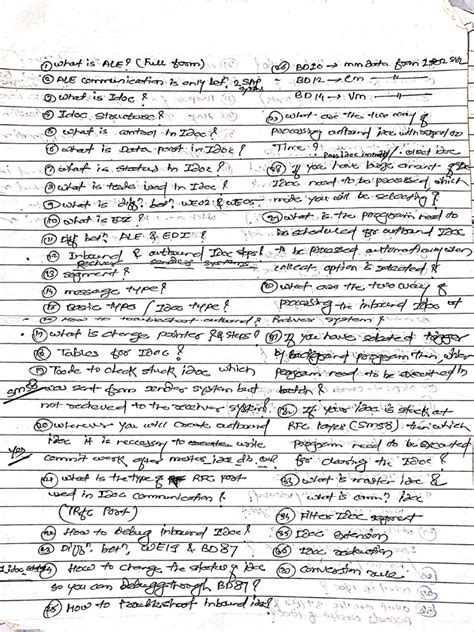 ① What is ALE? (Full form)
② ALE communication is only betⁿ 2 SAP systems
③ What is Idoc?
④ Idoc Structure?
⑤ What is control in IDoc?
⑥ What is Data part in IDoc?
⑦ What is status in IDoc?
⑧ What is tcode used in IDoc?
⑨ What is diffⁿ betⁿ WE02 & WE05
⑩ What is
⑪ Diff betⁿ ALE & EDI?
⑫ Inbound & outbound Idoc steps?
Receiver sender systems
⑬ Segment?
⑭ message type?
⑮ Basic types / IDoc type?
⑯ How to troubleshoot outbound?
⑰ What is change pointer? & steps?
⑱ Tables for IDoc?
⑲ Tcode to check stuck idoc which
SM58 was sent from sender system but
not recieved to the receiver system?
⑳ wherever you will create outbound
idoc it is necessary to write
yes commit work after master_idoc_dis
㉑ What is the type of RFC port
used in IDoc communication?
(TRFC Port)
㉒ How to Debug inbound Idoc?
㉓ Diffⁿ betⁿ WE19 & BD87
㉔ How to change the status of idoc
so you can debug through BD87?
㉕ How to troubleshoot Inbound idoc?
㉖ BD10 → mm Data from
BD12 → Cm — " —
BD14 → Vm — " —
㉗ What are the two way of
processing outbound idoc
Time?
Pass idoc immedy / collect idoc
㉘ If you have huge amount of Idoc
Idoc need to be processed which
mode you will be selecting?
㉙ What is the program need to
be scheduled for outbound Idoc
to be processed automatically when
collect option is selected?
㉚ What are the two way of
processing the inbound Idoc at
Reciver system?
㉛ If you have selected trigger
by Background program then which
program need to be executed in
batch?
㉜ If your idoc is stuck at
RFC layer (SM58) then which
program need to be executed
for clearing the Idoc?
㉝ What is master idoc &
what is commⁿ idoc
㉞ Filter IDoc segment
㉟ IDoc extension
㊱ Idoc reduction
conversion rule